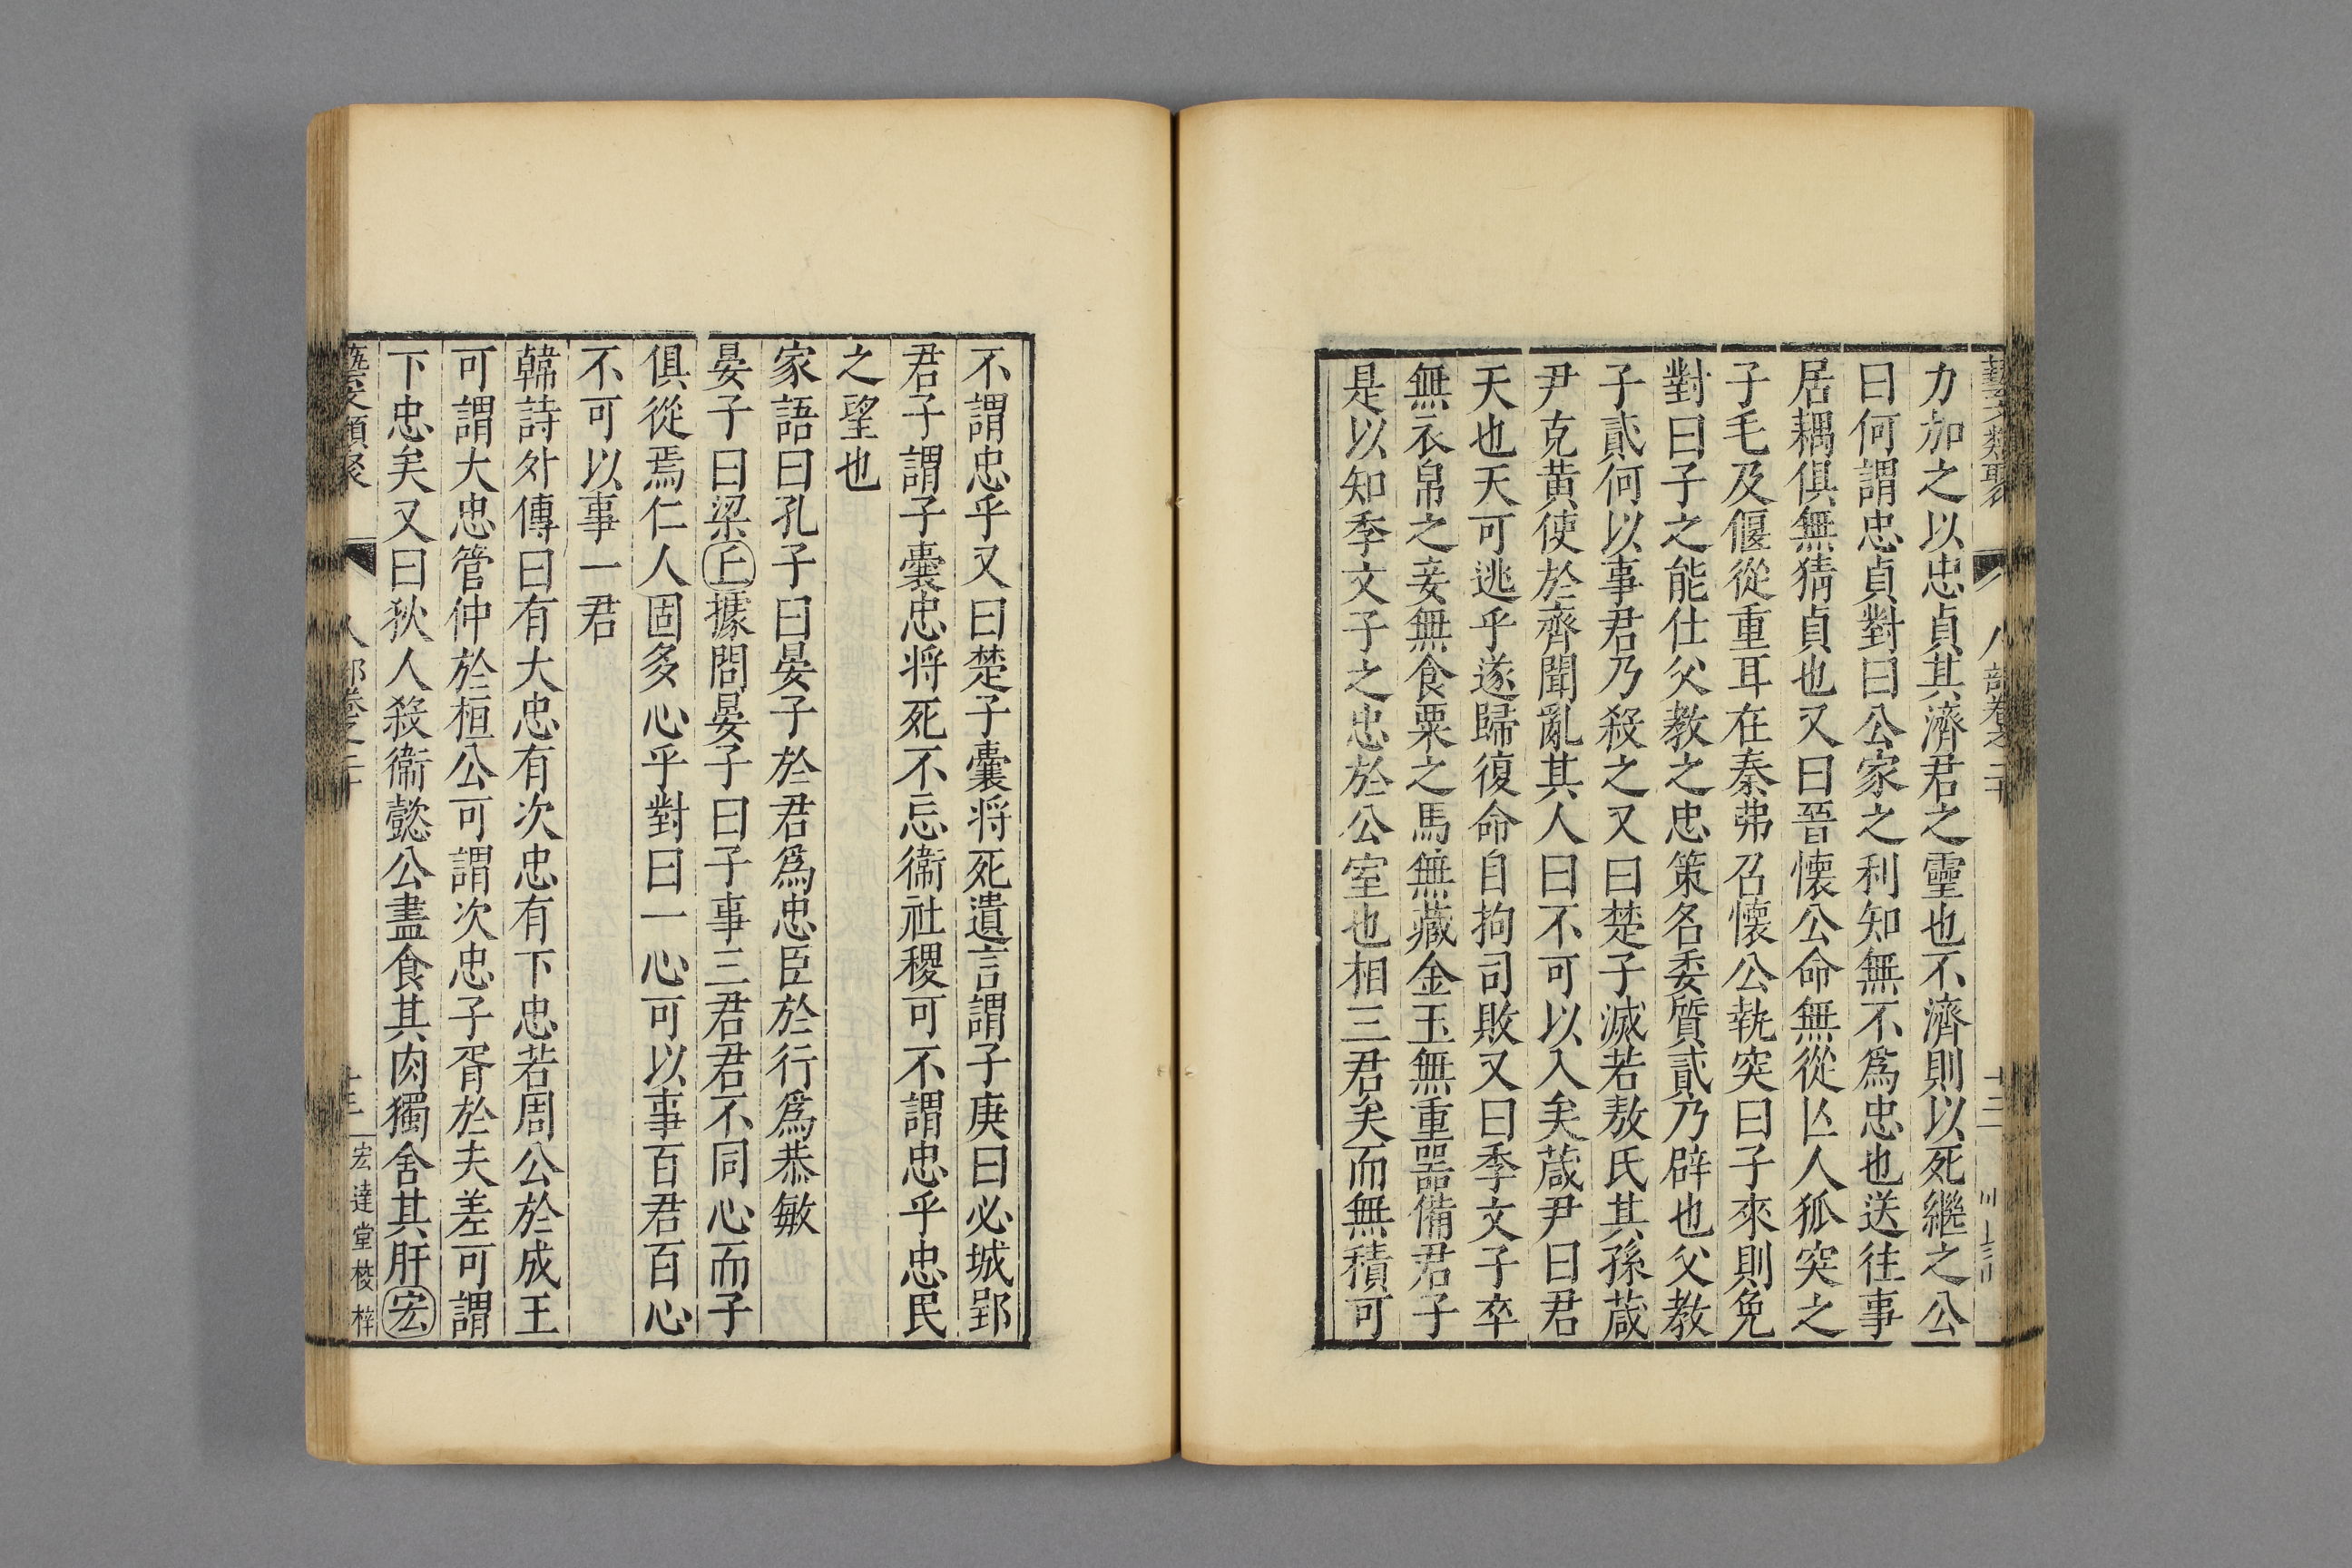 藝文類聚 人部卷之二十 十二
力加之以忠貞其濟君之靈也不濟則以死繼之公
曰何謂忠貞對曰公家之利知無不爲忠也送往事
居耦俱無猜貞也又曰晉懷公命無從亾人狐突之
子毛及偃從重耳在秦弗召懷公執突曰子來則免
對曰子之能仕父教之忠策名委質貳乃辟也父教
子貳何以事君乃殺之又曰楚子滅若敖氏其孫葴
尹克黃使於齊聞亂其人曰不可以入矣葴尹曰君
天也天可逃乎遂歸復命自拘司敗又曰季文子卒
無衣帛之妾無食粟之馬無藏金玉無重器備君子
是以知季文子之忠於公室也相三君矣而無積可
不謂忠乎又曰楚子囊将死遺言謂子庚曰必城郢
君子謂子囊忠将死不忘衞社稷可不謂忠乎忠民
之望也
家語曰孔子曰晏子於君爲忠臣於行爲恭敏
晏子曰梁丘據問晏子曰子事三君君不同心而子
俱從焉仁人固多心乎對曰一心可以事百君百心
不可以事一君
韓詩外傳曰有大忠有次忠有下忠若周公於成王
可謂大忠管仲於桓公可謂次忠子胥於夫差可謂
下忠矣又曰狄人殺衞懿公盡食其肉獨舍其肝宏
藝文類聚 人部卷之二十 十三 宏達堂校梓